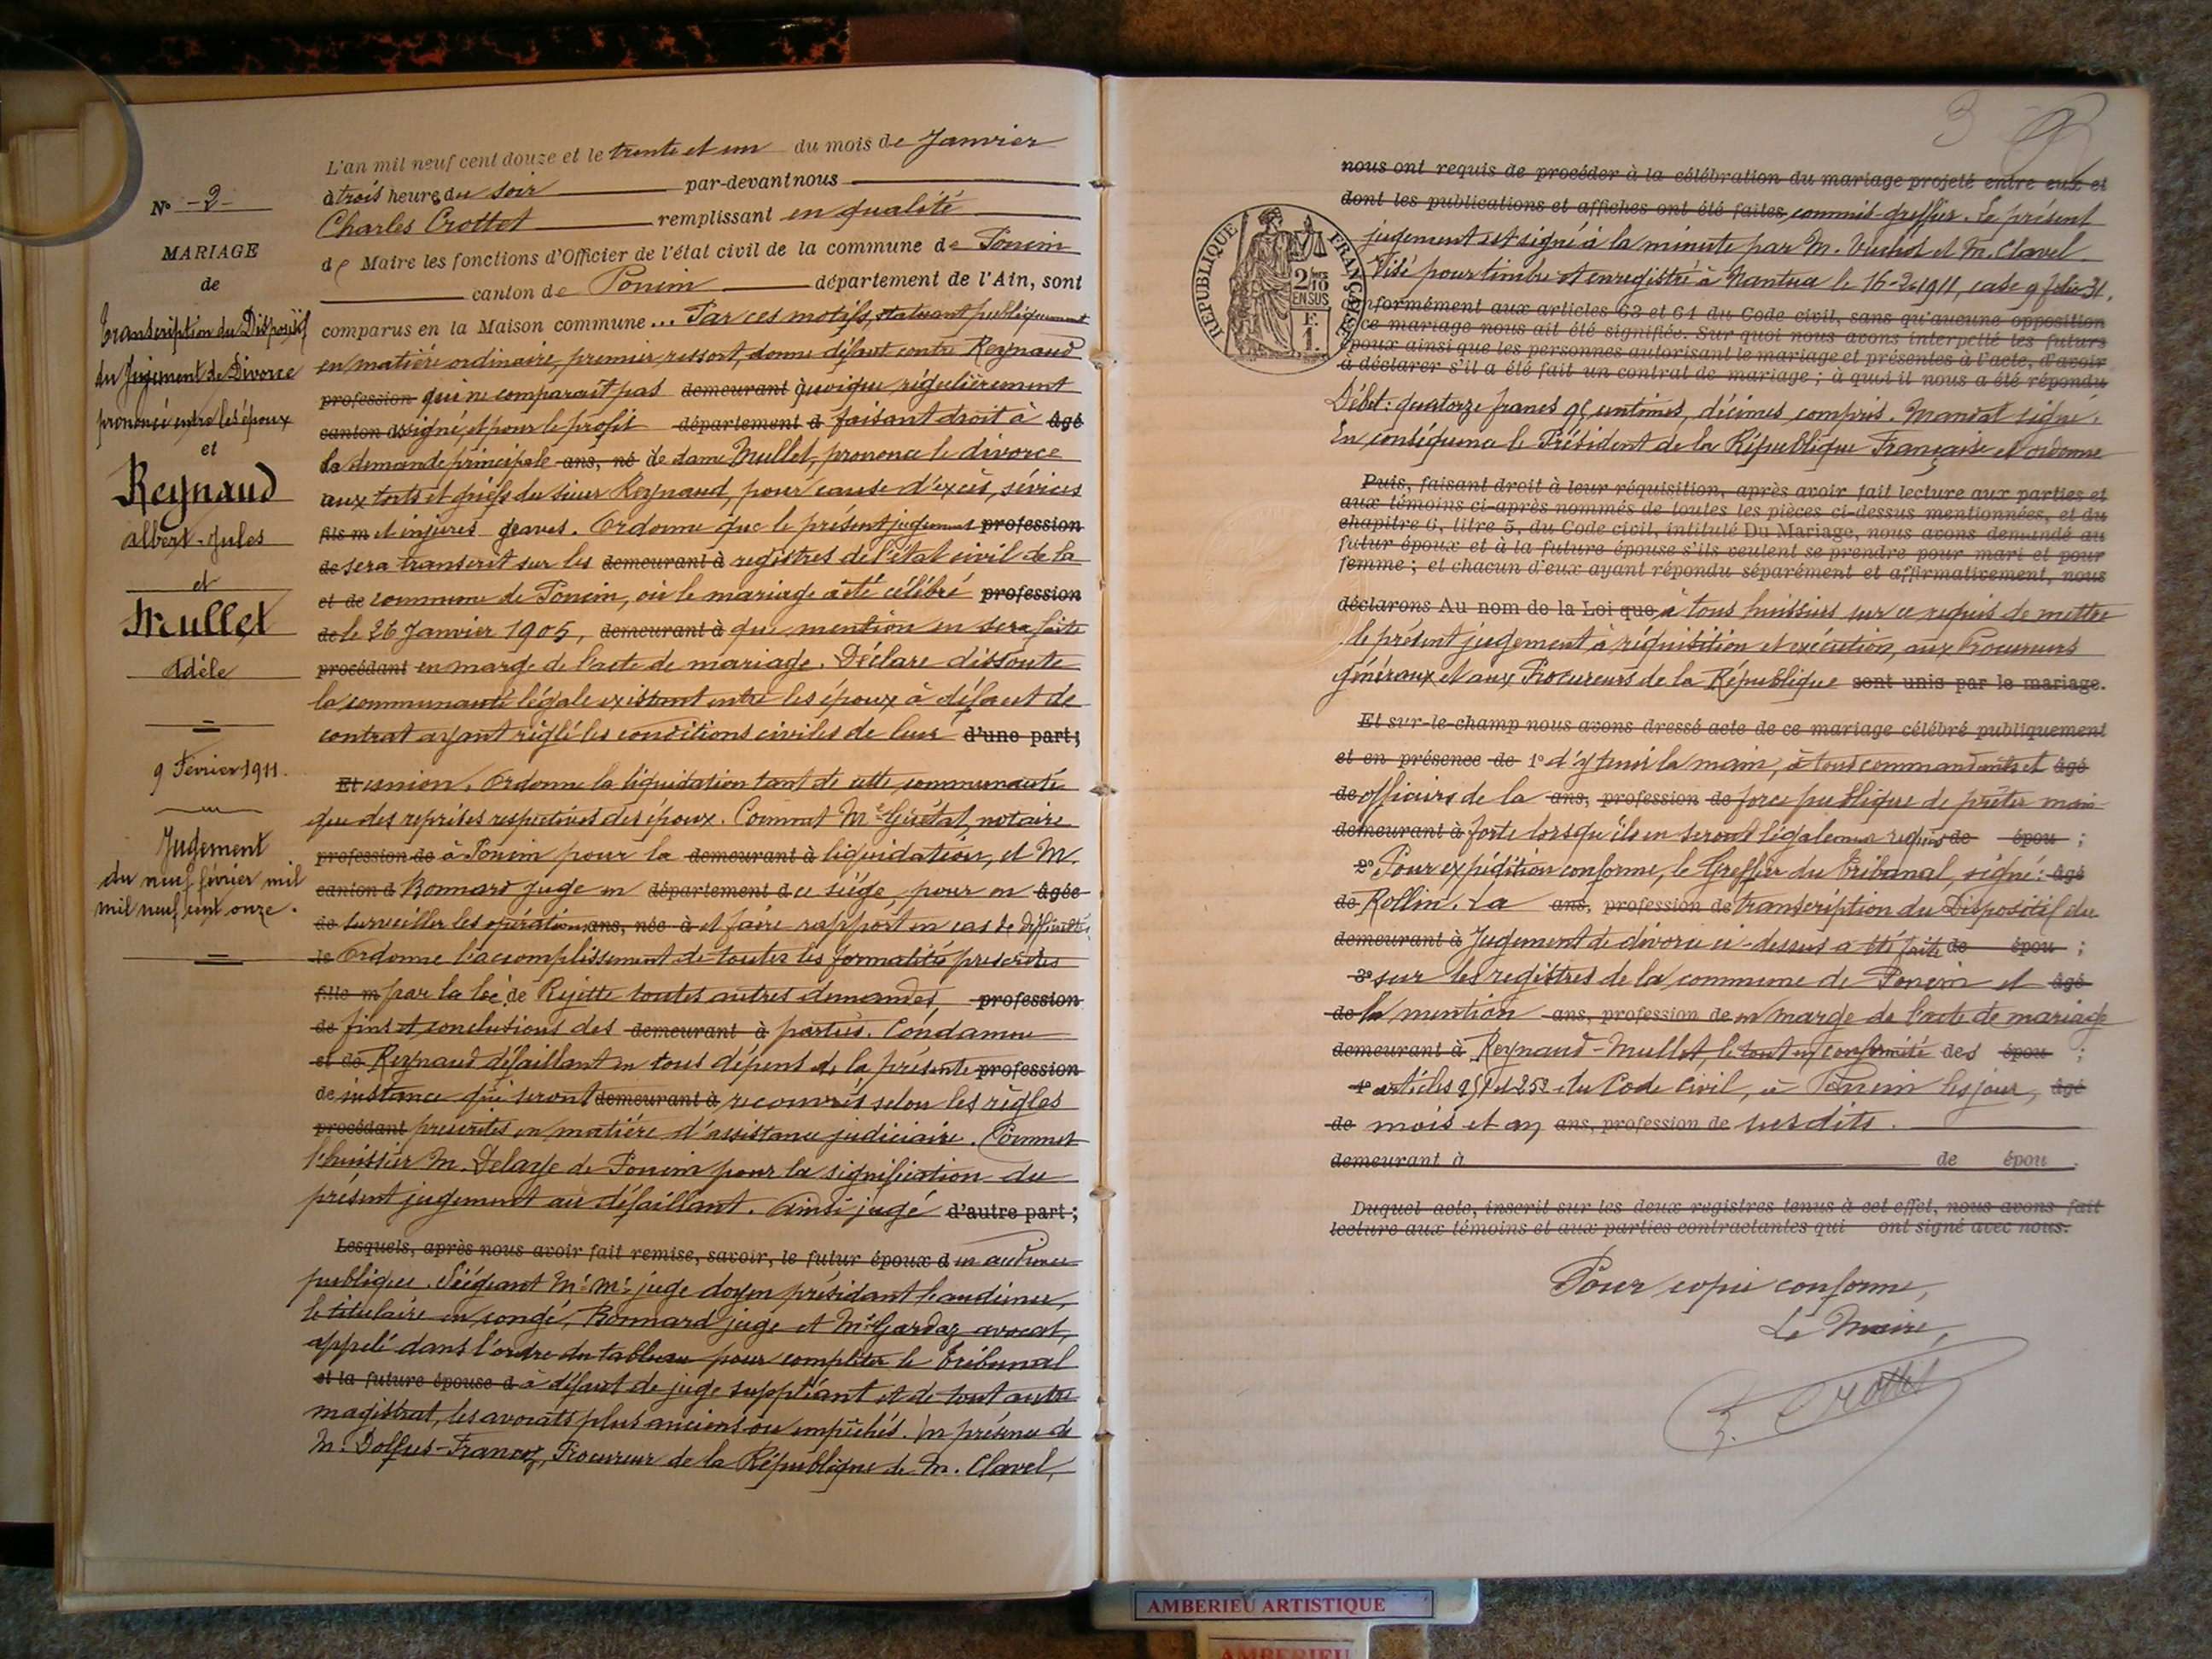 N° -2-
MARIAGE
de
Transcription du Dispositif
du Jugement de Divorce
prononcé entre les époux
et
Reynaud
Albert-Jules
et
Mullet
Adèle
9 Février 1911.
Jugement
du neuf février mil
mil neuf cent onze.
L'an mil neuf cent douze et le trente et un du mois de Janvier
à trois heures du soir par-devant nous
Charles Crottet remplissant en qualité
de Maire les fonctions d'Officier de l'état civil de la commune de Poncin
canton de Poncin département de l'Ain, sont
comparus en la Maison commune... Par ces motifs, statuant publiquement
en matière ordinaire, premier ressort, donne défaut contre Reynaud
profession qui ne comparaît pas demeurant quoique régulièrement
canton assigné, et pour le profit département d faisant droit à âgé
la demande principale ans, né de dame Mullet, prononce le divorce
aux torts et griefs du sieur Reynaud, pour cause d'excès, sévices
fils m et injures graves. Ordonne que le présent jugement profession
de sera transcrit sur les demeurant à registres de l'état civil de la
et de commune de Poncin, où le mariage a été célébré profession
de le 26 Janvier 1905, demeurant à que mention en sera faite
procédant en marge de l'acte de mariage. Déclare dissoute
la communauté légale existant entre les époux à défaut de
contrat ayant réglé les conditions civiles de leur d'une part;
Et union. Ordonne la liquidation tant de cette communauté
que des reprises respectives des époux. Commet Me notaire
profession de à Poncin pour la demeurant à liquidation, et M.
canton d Bonnard Juge en département d ce siège, pour en âgée
de surveiller les opérations ans, née à et faire rapport en cas de difficultés
le Ordonne l'accomplissement de toutes les formalités prescrites
fille m par la loi. de Rejette toutes autres demandes, profession
de fins et conclusions des demeurant à parties. Condamne
et de Reynaud défaillant en tous dépens de la présente profession
de instance qui seront demeurant à recouvrés selon les règles
procédant prescrites en matière d'assistance judiciaire. Commet
l'huissier M. Delaye de Poncin pour la signification du
présent jugement au défaillant. Ainsi jugé d'autre part;
Lesquels, après nous avoir fait remise, savoir, le futur époux d en audience
publique. Siégeant Mr Mr juge doyen présidant l'audience,
le titulaire en congé, Bonnard juge et Me Gardaz avocat,
appelé dans l'ordre du tableau pour compléter le tribunal
et la future épouse d à défaut de juge suppléant et de tout autre
magistrat, les avocats plus anciens ou empêchés. En présence de
M. Dolfus-Francoz, Procureur de la République de M. Clavel,
3
nous ont requis de procéder à la célébration du mariage projeté entre eux et
dont les publications et affiches ont été faites, commis-greffier. Le présent
jugement est signé à la minute par M. et M. Clavel.
Visé pour timbre et enregistré à Nantua le 16-2-1911, case 9 folio 31.
conformément aux articles 63 et 64 du Code civil, sans qu'aucune opposition
à ce mariage nous ait été signifiée. Sur quoi nous avons interpellé les futurs
époux ainsi que les personnes autorisant le mariage et présentes à l'acte, d'avoir
à déclarer s'il a été fait un contrat de mariage; à quoi il nous a été répondu
RÉPUBLIQUE FRANÇAISE
2/10
EN SUS
F.
1.
Débet: quatorze francs 95 centimes, décimes compris. Mandat signé.
En conséquence le Président de la République Française et ordonne
Puis, faisant droit à leur réquisition, après avoir fait lecture aux parties et
aux témoins ci-après nommés de toutes les pièces ci-dessus mentionnées, et du
chapitre 6, titre 5, du Code civil, intitulé Du Mariage, nous avons demandé au
futur époux et à la future épouse s'ils veulent se prendre pour mari et pour
femme; et chacun d'eux ayant répondu séparément et affirmativement, nous
déclarons Au nom de la Loi que à tous huissiers sur ce requis de mettre
le présent jugement à réquisition et exécution, aux Procureurs
généraux et aux Procureurs de la République sont unis par le mariage.
Et sur-le-champ nous avons dressé acte de ce mariage célébré publiquement
et en présence de 1° d'y tenir la main, à tous commandants et âgé
de officiers de la ans, profession de force publique de prêter main
demeurant à forte lorsqu'ils en seront légalement requis de épou ;
2° Pour expédition conforme, le Greffier du tribunal, signé: âgé
de Rollin. La ans, profession de transcription du Dispositif du
demeurant à Jugement de divorce ci-dessus a été faite de épou ;
3° sur les registres de la commune de Poncin et âgé
de la mention ans, profession de en marge de l'acte de mariage
demeurant à Reynaud-Mullet, le tout en conformité des épou ;
4° articles 251 et 252 du Code Civil, à Poncin les jour, âgé
de mois et an ans, profession de susdits.
demeurant à de épou .
Duquel acte, inscrit sur les deux registres tenus à cet effet, nous avons fait
lecture aux témoins et aux parties contractantes qui ont signé avec nous.
Pour copie conforme,
Le Maire,
C. Crottet
AMBERIEU ARTISTIQUE
AMBERIEU